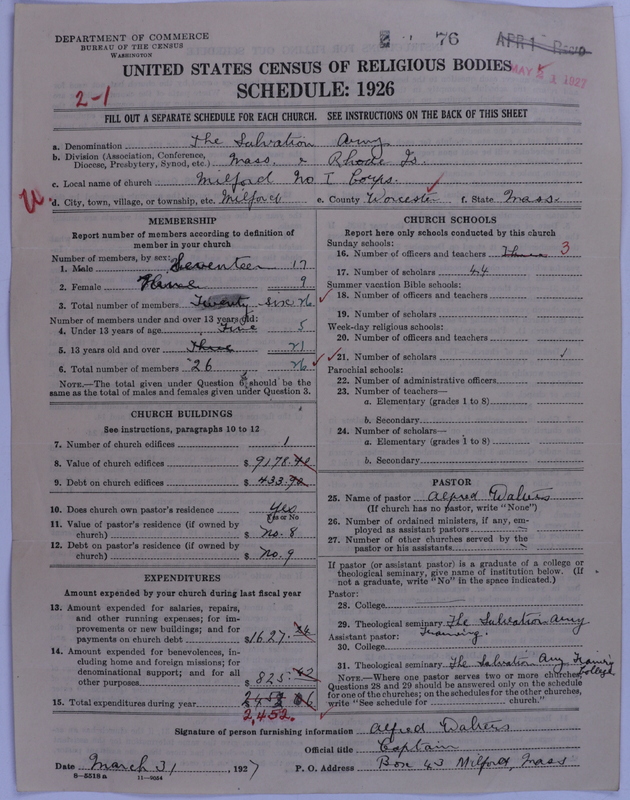 DEPARTMENT OF COMMERCE
BUREAU OF THE CENSUS
WASHINGTON
76
APR 1 REC'D
MAY 21 1927
UNITED STATES CENSUS OF RELIGIOUS BODIES
SCHEDULE: 1926
2-1
FILL OUT A SEPARATE SCHEDULE FOR EACH CHURCH. SEE INSTRUCTIONS ON THE BACK OF THIS SHEET
a. Denomination The Salvation Army
b. Division (Association, Conference, Diocese, Presbytery, Synod, etc.) Mass. & Rhode Is.
c. Local name of church Milford No I Corps.
d. City, town, village, or township, etc. Milford e. County Worcester f. State Mass.
MEMBERSHIP
Report number of members according to definition of member in your church
Number of members, by sex:
1. Male Seventeen 17
2. Female 9
3. Total number of members Twenty six 26
Number of members under and over 13 years old:
4. Under 13 years of age Five 5
5. 13 years old and over 21
6. Total number of members 26 26
NOTE.—The total given under Question 6 should be the same as the total of males and females given under Question 3.
CHURCH BUILDINGS
See instructions, paragraphs 10 to 12
7. Number of church edifices 1
8. Value of church edifices $ 9178.
9. Debt on church edifices $ 433.
10. Does church own pastor's residence Yes
Yes or No
11. Value of pastor's residence (if owned by church) $ No. 8
12. Debt on pastor's residence (if owned by church) $ No. 9
EXPENDITURES
Amount expended by your church during last fiscal year
13. Amount expended for salaries, repairs, and other running expenses; for improvements or new buildings; and for payments on church debt $ 1627.
14. Amount expended for benevolences, including home and foreign missions; for denominational support; and for all other purposes $ 825.
15. Total expenditures during year 2,452.
CHURCH SCHOOLS
Report here only schools conducted by this church
Sunday schools:
16. Number of officers and teachers Three 3
17. Number of scholars 44
Summer vacation Bible schools:
18. Number of officers and teachers
19. Number of scholars
Week-day religious schools:
20. Number of officers and teachers
21. Number of scholars
Parochial schools:
22. Number of administrative officers
23. Number of teachers—
a. Elementary (grades 1 to 8)
b. Secondary
24. Number of scholars—
a. Elementary (grades 1 to 8)
b. Secondary
PASTOR
25. Name of pastor Alfred Walters
(If church has no pastor, write "None")
26. Number of ordained ministers, if any, employed as assistant pastors
27. Number of other churches served by the pastor or his assistants
If pastor (or assistant pastor) is a graduate of a college or theological seminary, give name of institution below. (If not a graduate, write "No" in the space indicated.)
Pastor:
28. College
29. Theological seminary The Salvation Army Training.
Assistant pastor:
30. College
31. Theological seminary The Salvation Army Training College
NOTE.—Where one pastor serves two or more churches, Questions 28 and 29 should be answered only on the schedule for one of the churches; on the schedules for the other churches, write "See schedule for church."
Signature of person furnishing information Alfred Walters
Official title Captain
Date March 31, 1927 P. O. Address Box 43 Milford, Mass
8—5518a 11—9054